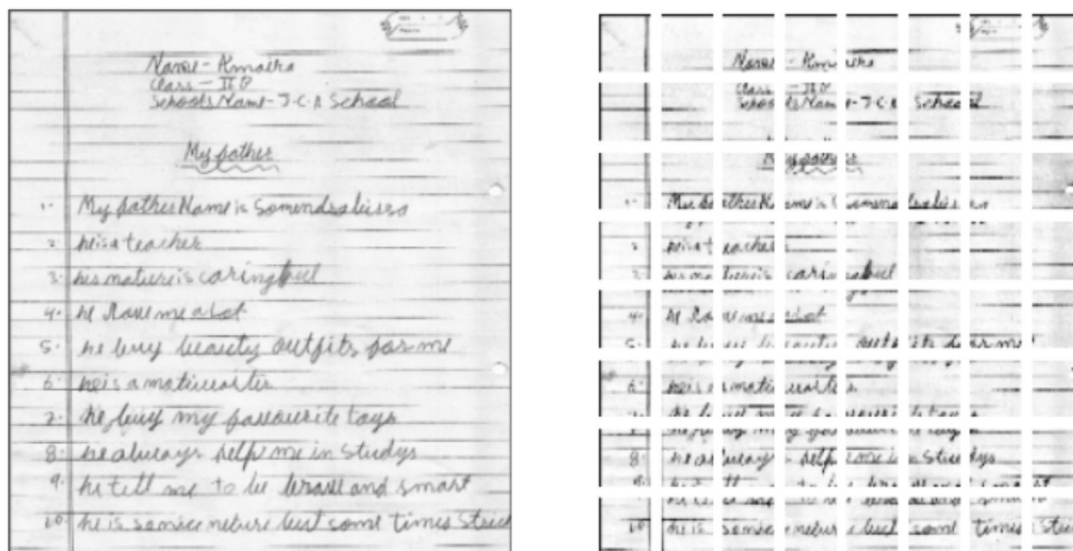 Name - Amaira
Class - II B
Schools Name - J.C.A School
My father
1. My father Name is Somendra
2. he is a teacher
3. his nature is caring
4. he love me a lot
5. he buy beauty outfits for me
6. he is a
7. he buy my favourite toys
8. he always help me in studys
9. he tell me to be brave and smart
10. he is nature but some times